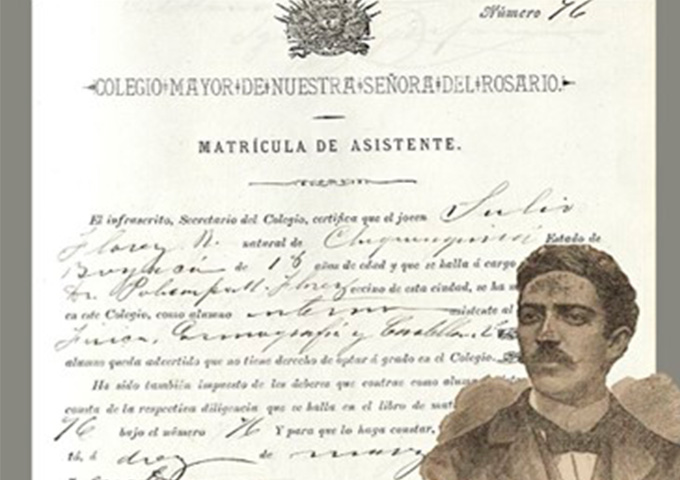 Número 76
COLEGIO MAYOR DE NUESTRA SEÑORA DEL ROSARIO.
MATRÍCULA DE ASISTENTE.
El infrascrito, Secretario del Colegio, certifica que el joven Julio
Florez R. natural de Chiquinquirá Estado de
Boyacá de 18 años de edad y que se halla á cargo
Dr. Policarpo M. Florez vecino de esta ciudad, se ha m
en este Colegio, como alumno interno asistente al
Física, Cosmografía y Castellano
alumno queda advertido que no tiene derecho de optar á grado en el Colegio.
Ha sido también impuesto de los deberes que contrae como alumno
consta de la respectiva diligencia que se halla en el libro de mat
76 bajo el número 76 Y para que lo haga constar,
tá, á diez de marz